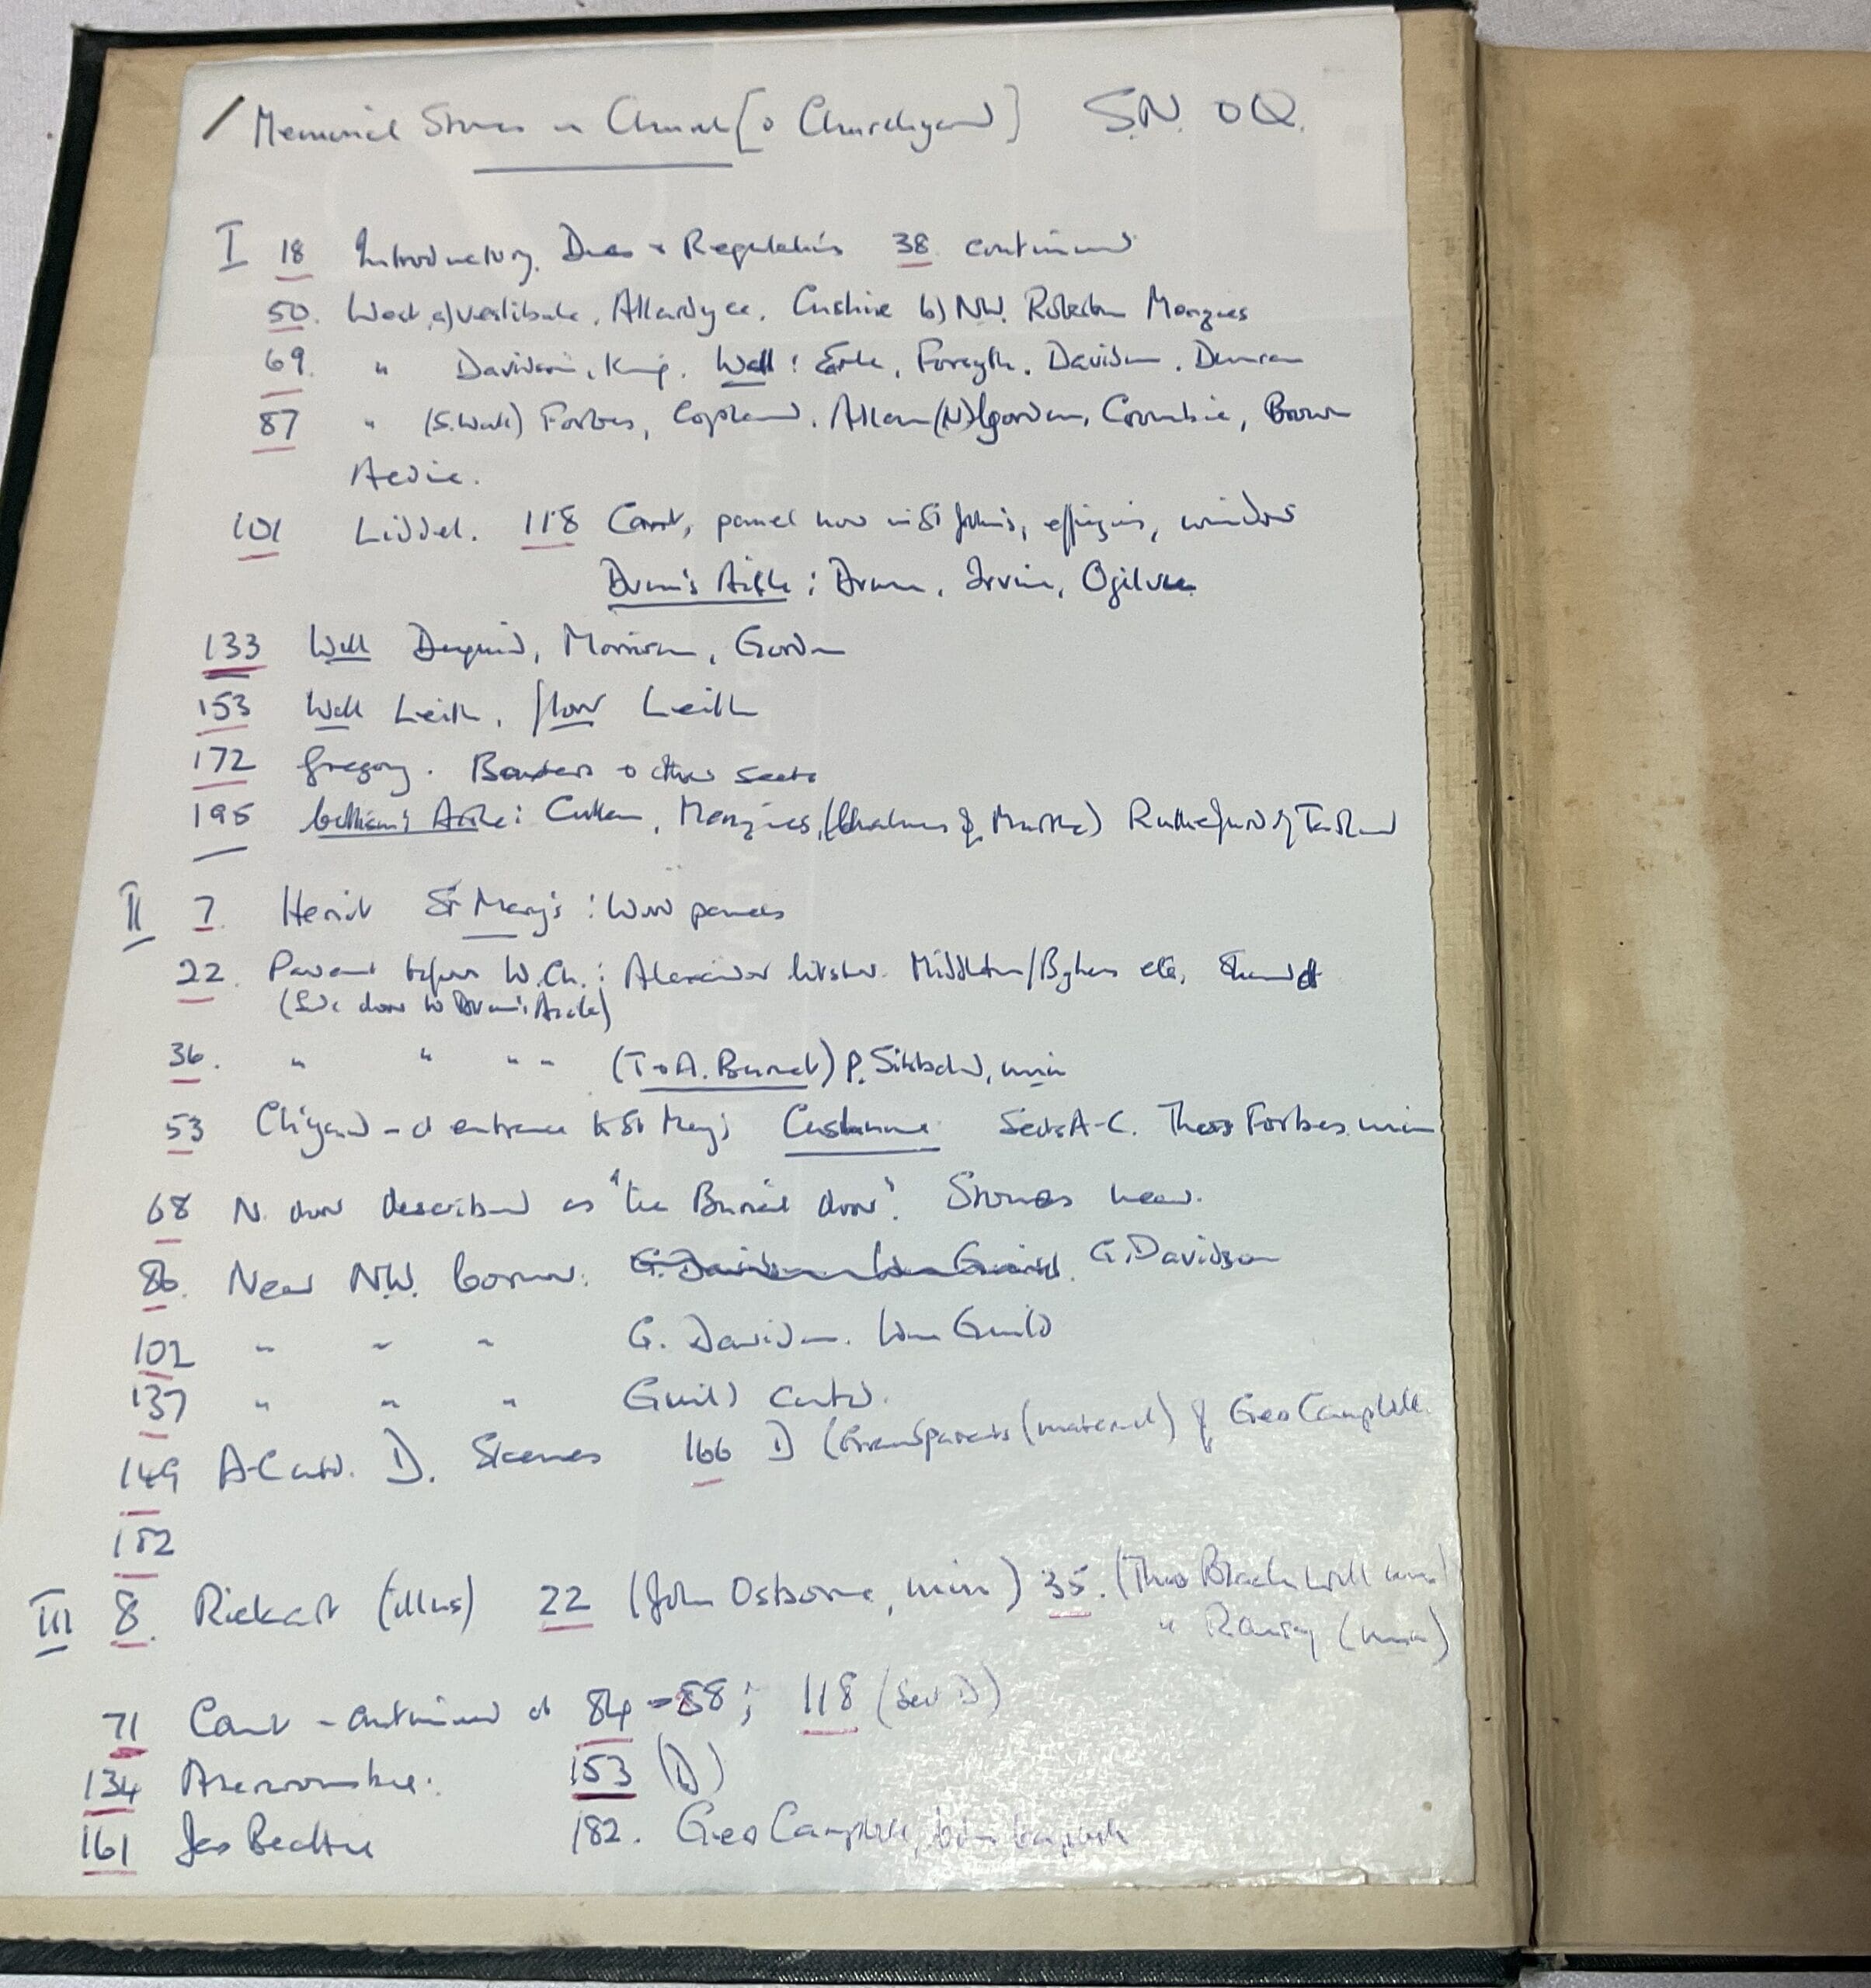 / Memorial Stones in Church [& Churchyard] S.N. & Q.
I 18 Introductory. Dues & Regulations 38 continued
50. West a) vestibule, Allardyce, Cushnie b) NW. Robertson Menzies
69. " Davidson, King. Wall: Forsyth. Davidson. Duncan
87 " (S. Wall) Forbes, Copland, Allan (N) Gordon, Crombie, Brown
Aedie.
101 Liddel. 118 Cant, panel now in St John's, effigies, window
Drum's Aisle: Drum, Irvine, Ogilvie
133 Wall Duguid, Morrison, Gordon
153 Wall Leith, floor Leith
172 Gregory. & other seats
195 Collison's Aisle: Cullen, Menzies, (Chalmers & Murtle) Rutherford of Tarland
II 7. Heriot St Mary's: Wood panels
22. Pavement before W. Ch.: Alexander Middleton/ etc.
(Side door to Drum's Aisle)
36. " " " " (T & A. Burnet) P. Sibbald, min
53 Ch'yard - at entrance to St Mary's Cushnie Sects A-C. Thos Forbes min
68 N. door described as "the Burial door". Stones near.
86. Near N.W. Corner. G. Davidson
102 " " " G. Davidson. Wm Guild
137 " " " Guild contd.
149 A-C contd. D. Skenes 166 D (Grandparents (maternal) of Geo Campbell
182
III 8. Rickart (illus) 22 (John Osborne, min) 35. (Thos Blackwell min)
" Ramsay (min)
71 Cant - continued at 84-88; 118 (Sect D)
134 Abercrombie. 153 (D)
161 Jas Beattie 182. Geo Campbell, Campbell